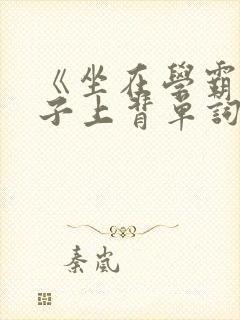 《坐在學霸
子上背單詞
秦嵐